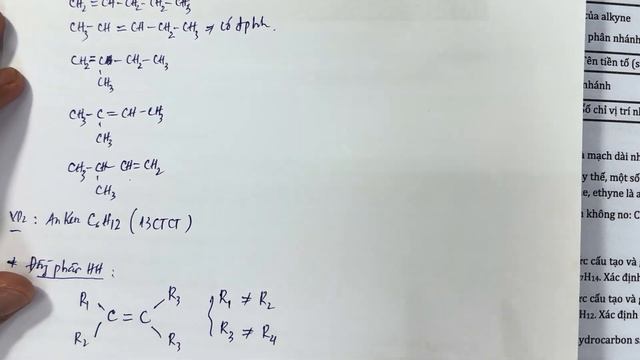 CH2=CH-CH2-CH2-CH3
CH3-CH=CH-CH2-CH3 ⇒ có đphh.
CH2=C-CH2-CH3
CH3
CH3-C=CH-CH3
CH3
CH3-CH-CH=CH2
CH3
VD2: Anken C6H12 (13CTCT)
* Đồng phân HH:
R1 R3
C=C
R2 R3
R1 ≠ R2
R3 ≠ R4
của alkyne
phân nhánh
Tên tiền tố (s
nhánh
Số chỉ vị trí nh
mạch dài nh
y thế, một số
e, ethyne là a
n không no: C
ức cấu tạo và g
7H14. Xác định
ức cấu tạo và g
H12. Xác định
ydrocarbon s